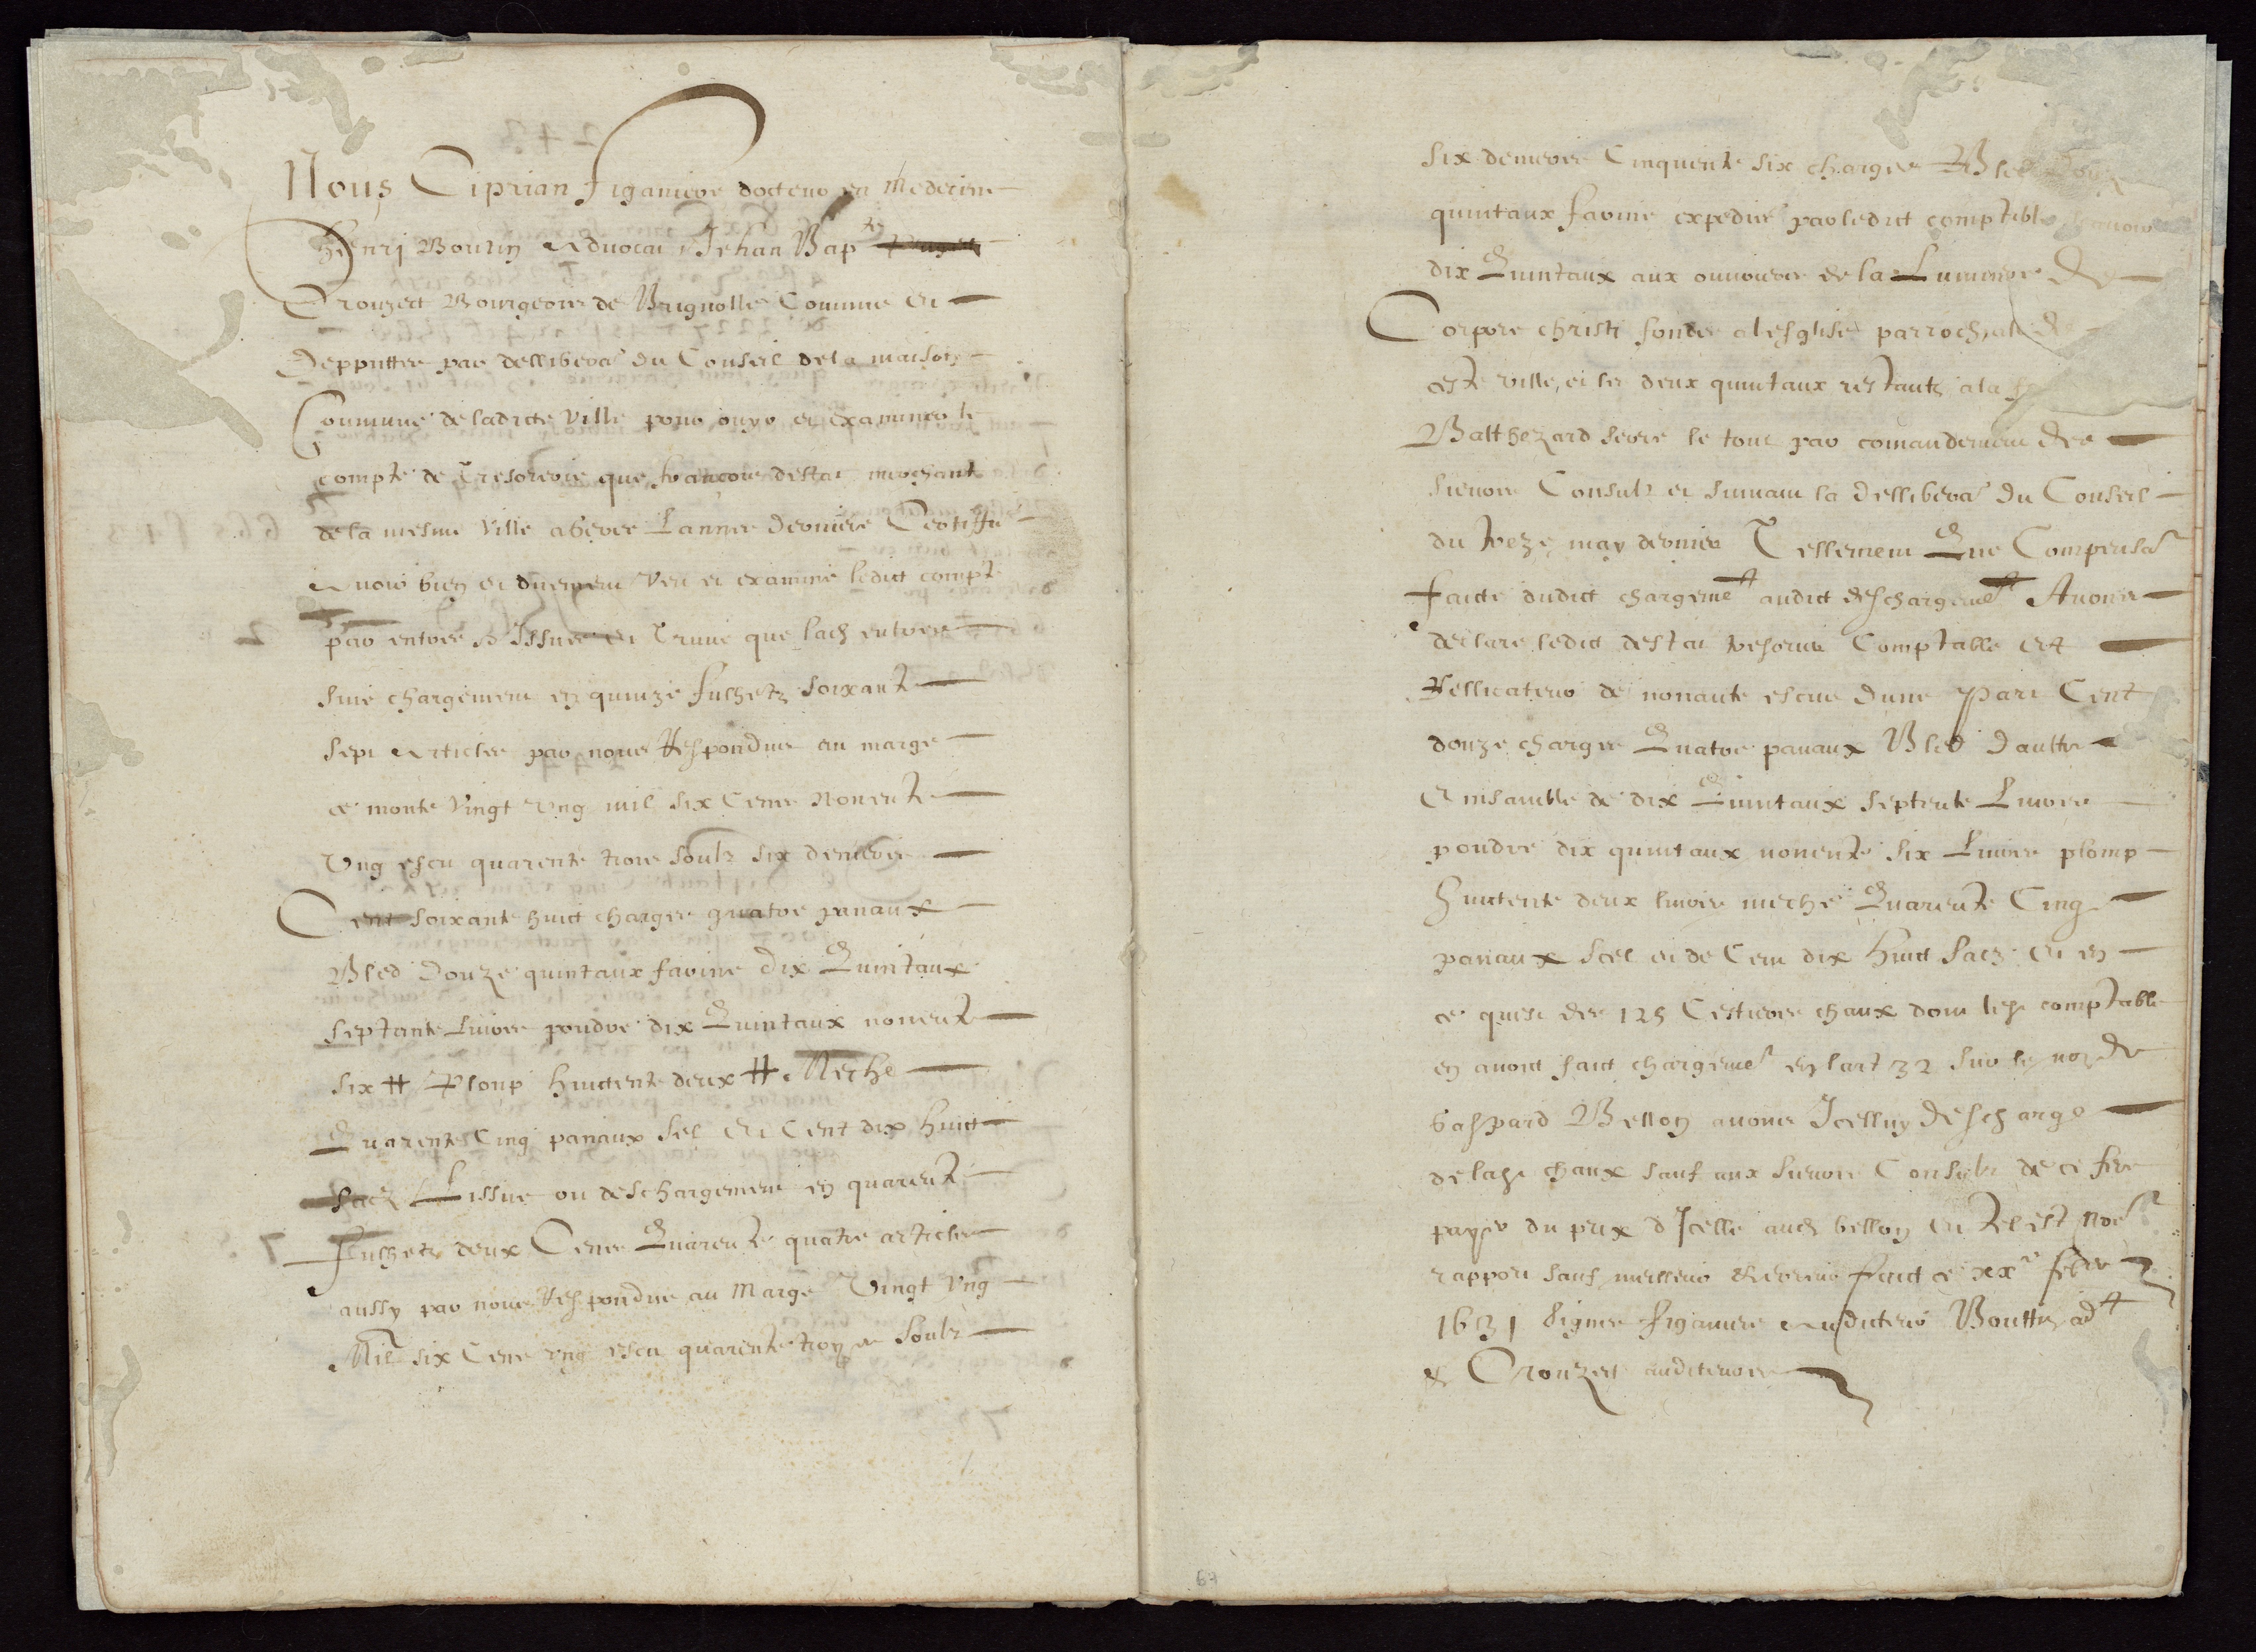 Nous Ciprian figaniere docteur en medecine
Henrj Boutin Advocat Jehan Bap^te
Crouzet Bourgeois de Brignolle Commis et
Depputtes par dellibera^on du Conseil dela maison
Commune de ladicte ville pour ouyr et examiner le
compte de Tresorerie que francois destat merchant
de la mesme ville a heree Lannee derniere Certiffie
Avoir bien et duement veu et examine ledict compte
par entree & Issue et Truve que lach entree
sive chargement en quinze fulhetz soixante
sept Articles par nous Respondus au marge
ce monte vingt vng mil six Cens Nonente
Vng escu quarente trois soulz six deniers
Cent soixante huict charges quatre panaux
Bled Douze quintaux farine dix Quintaux
septante Livres poudre dix Quintaux nonente
six tt Plomp huictente deux tt Meche
Quarente Cinq panaux sel Et Cent dix huict
sacz Lissue ou deschargement en quarente
Fulhetz deux Cens Quarente quatre articles
aussy par nous Respondus au Marge Vingt Vng
Mil six Cens vng escu quarente troys soulz
six deniers Cinquente six charges Bled
quintaux farine expedies par ledict comptable
dix Quintaux aux ouvriers de la Luminere De
Corpore christi fonde a lesglise parrochialle
ceste ville, et les deux quintaux restantz a la
Balthezard serre le tout par comandement des
sieurs Consulz et suivant la Dellibera^on Du Conseil
du treze may dernier Tellement Que Compensa^on
faicte dudict chargeme^t audict deschargeme^t Avons
declare ledict destat tresorier Comptable Et
Rellicateur de nonante escus Dune Part Cent
douze charges Quatre panaux Bled Daultre
Ensamble de dix Quintaux septente Livres
poudre dix quintaux nonente six Livres plomp
huictente deux livres meche Quarente Cinq
panaux Scel et de Cent dix huict Sacz Et en
ce quest des 125 Cestiers chaux dont lesd comptable
en avoit faict chargeme^t en lart 32 sur le nom de
Gaspard Bellon avons Icelluy Descharge
delad chaux sauf aux sieurs Consulz de ce fere
payer du prix dIcelle aud bellon Et tel est No^e
rapport sauf meilleur faict ce xx^e febr^r
1631 Signes figaniere Auditeur Bouttin ad^t
& Crouzet auditeurs
67